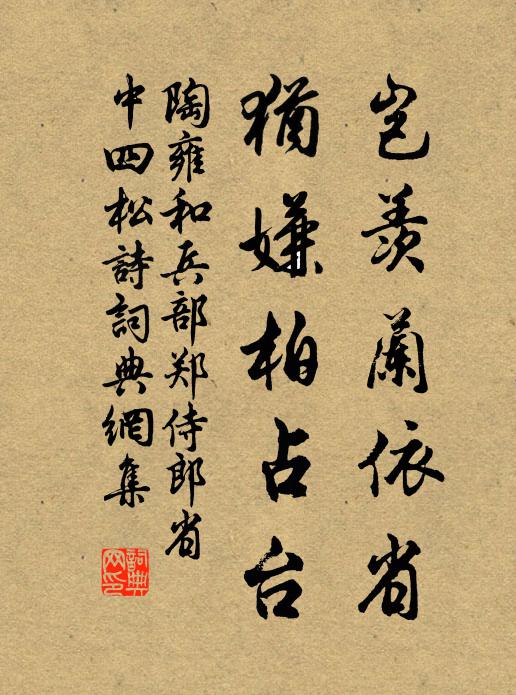 岂羡兰依省
犹嫌柏占台
陶雍和兵部郑侍郎省
中四松詩詞典網集
詞典
网印